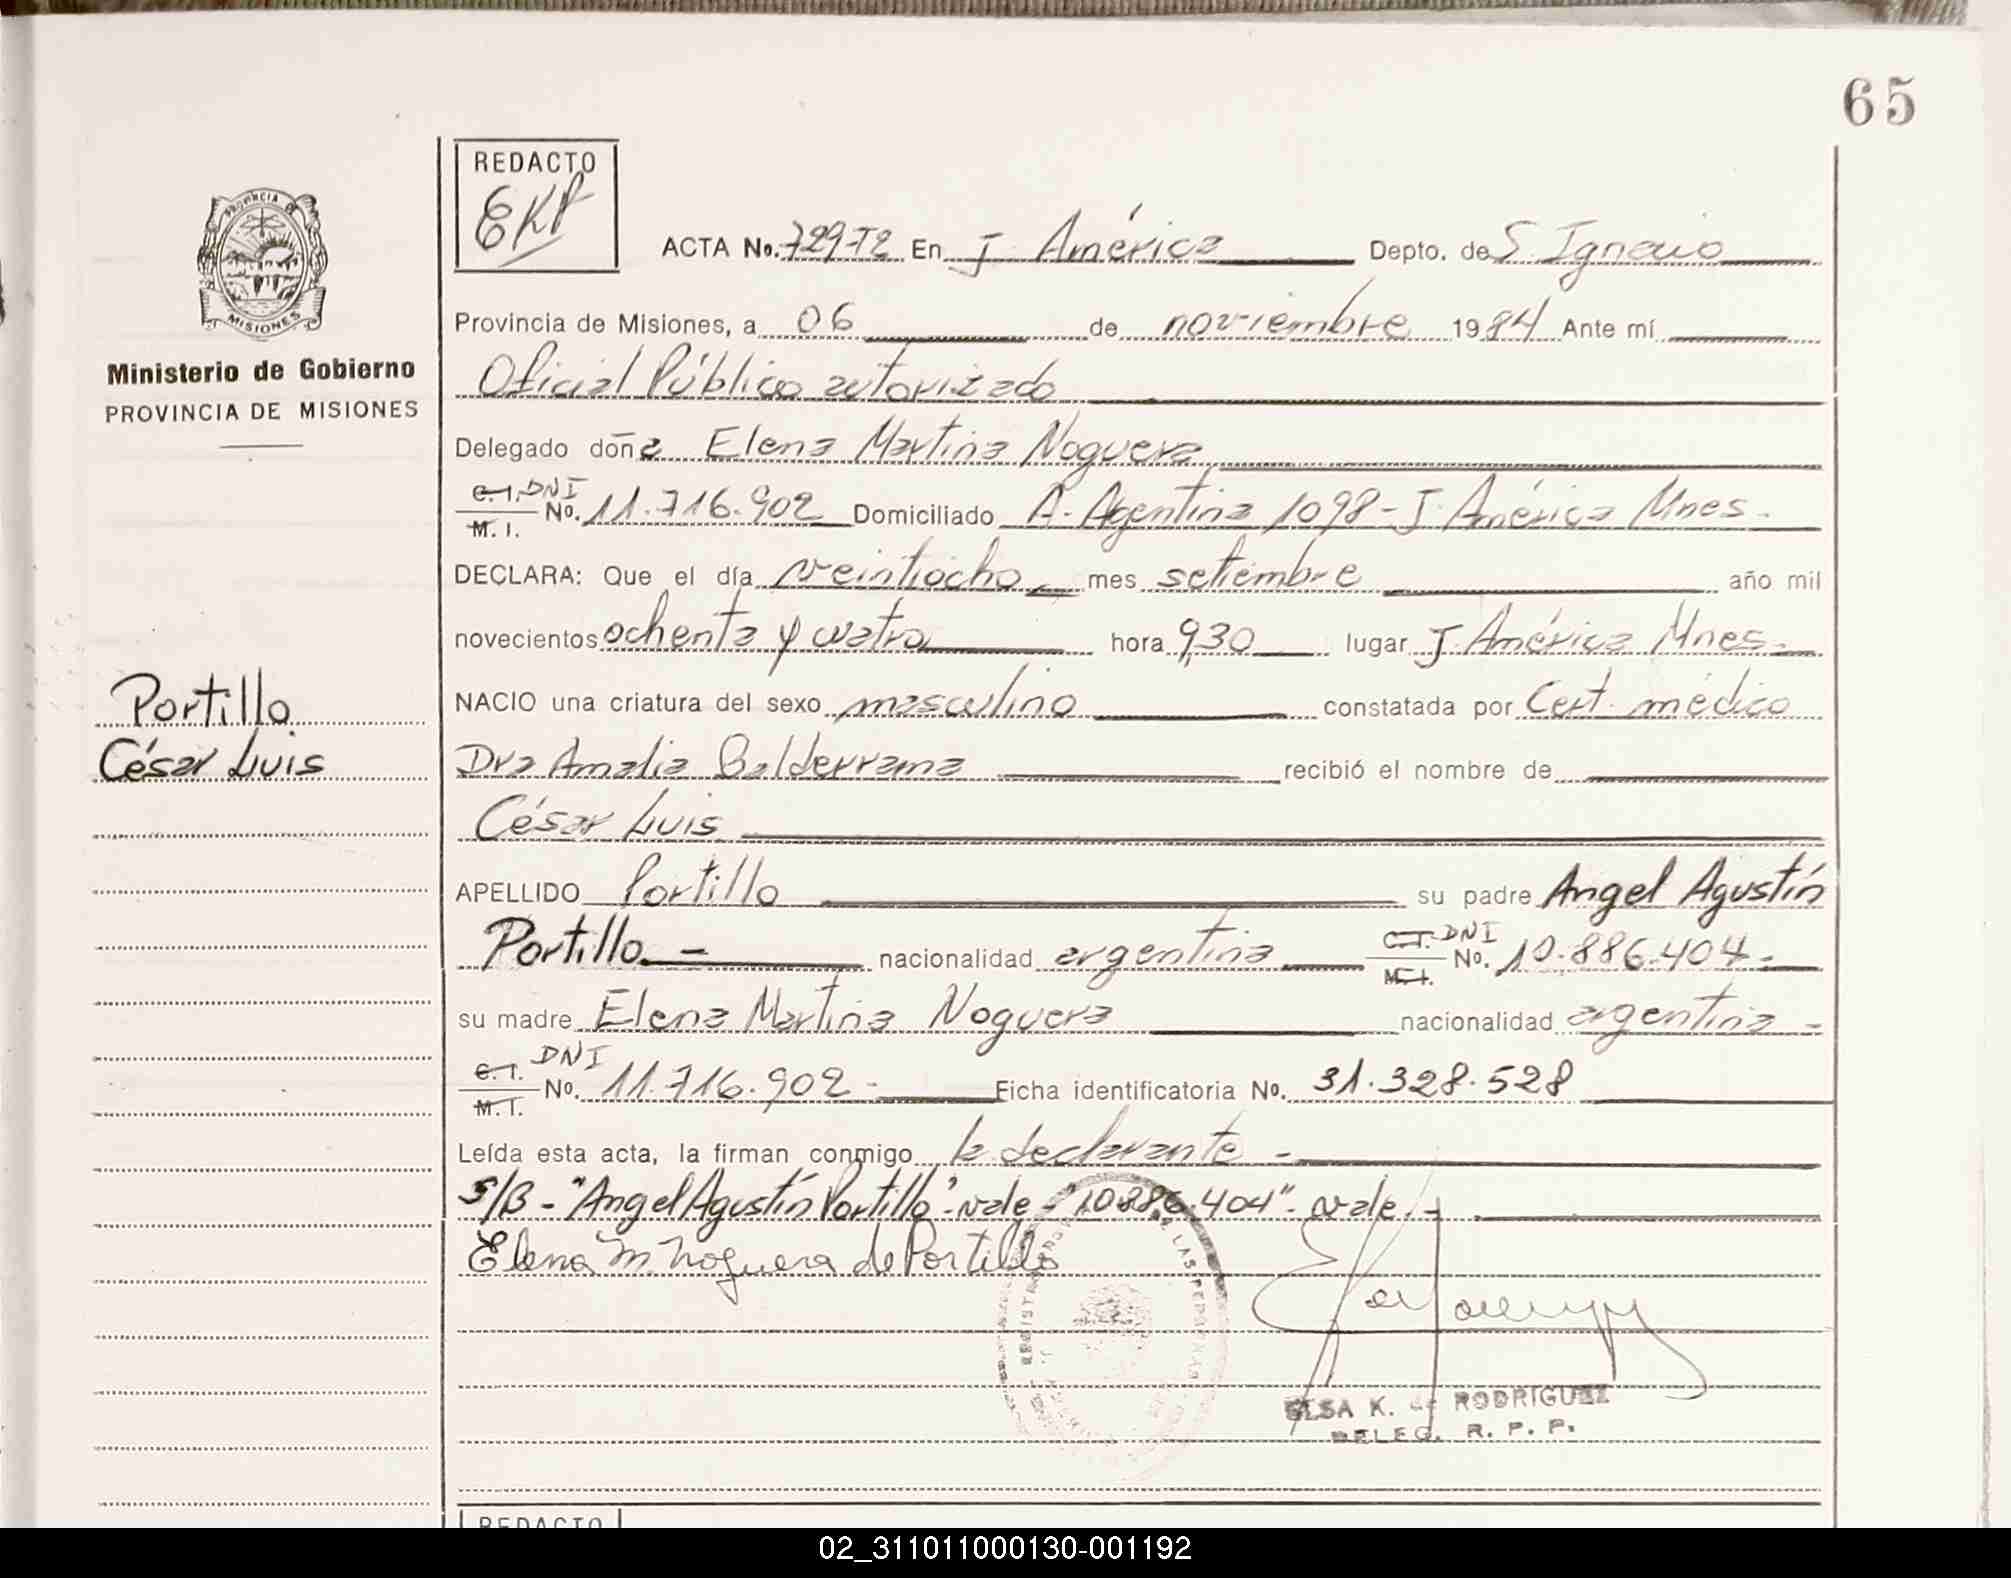 65
REDACTO
EKP
PROVINCIA DE
MISIONES
Ministerio de Gobierno
PROVINCIA DE MISIONES
Portillo
César Luis
ACTA No. 729-T2 En J. América Depto. de S. Ignacio
Provincia de Misiones, a 06 de noviembre 1984 Ante mí
Oficial Público autorizado
Delegado doña Elena Martina Noguera
C.I. DNI
M. I. No. 11.716.902 Domiciliado A. Agentina 1098 - J. América Mnes.
DECLARA: Que el día veintiocho mes setiembre año mil
novecientos ochenta y cuatro hora 9,30 lugar J. América Mnes.
NACIO una criatura del sexo masculino constatada por Cert. médico
Dra Amalia Balderrama recibió el nombre de
César Luis
APELLIDO Portillo su padre Angel Agustín
Portillo.- nacionalidad argentina C.I. DNI M.I. No. 10.886.404.-
su madre Elena Martina Noguera nacionalidad argentina -
C.I. DNI M.I. No. 11.716.902.- Ficha identificatoria No. 31.328.528
Leída esta acta, la firman conmigo la declarante -
S/B - "Angel Agustín Portillo"- vale - "10.886.404"- vale.-
Elena M. Noguera de Portillo
LAS PERSONAS
ELSA K. de RODRIGUEZ
DELEG. R. P. P.
REDACTO
02_311011000130-001192